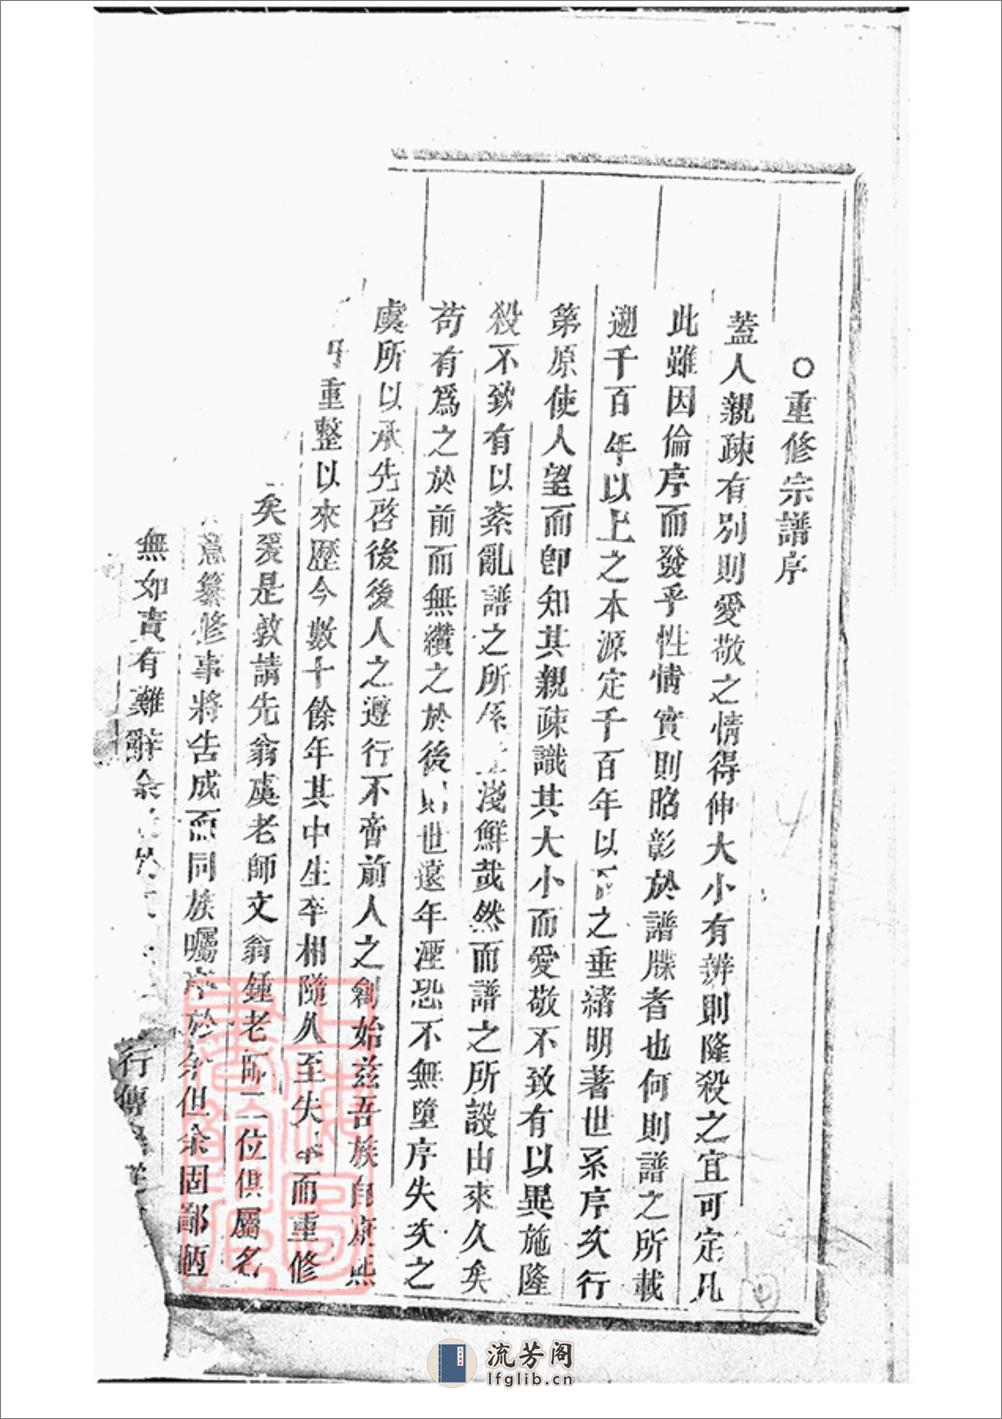 ○重修宗譜序
蓋人親疎有別則愛敬之情得伸大小有辨則隆殺之宜可定凡
此雖因倫序而發乎性情實則昭彰於譜牒者也何則譜之所載
遡千百年以上之本源定千百年以下之垂緒明著世系序次行
第原使人望而卽知其親疎識其大小而愛敬不致有以異施隆
殺不致有以紊亂譜之所係淺鮮哉然而譜之所設由來久矣
苟有爲之於前而無纘之於後則世遠年湮恐不無墮序失次之
虞所以承先啓後後人之遵行不啻前人之創始兹吾族自康熙
重整以來歷今數十餘年其中生卒相隨久至失而重修
矣爰是敦請先翁虞老師文翁鍾老師二位俱屬名
意纂修事將告成而同族囑序於余但余固鄙
無如責有難辭余
行傳
流芳阁
lfglib.cn